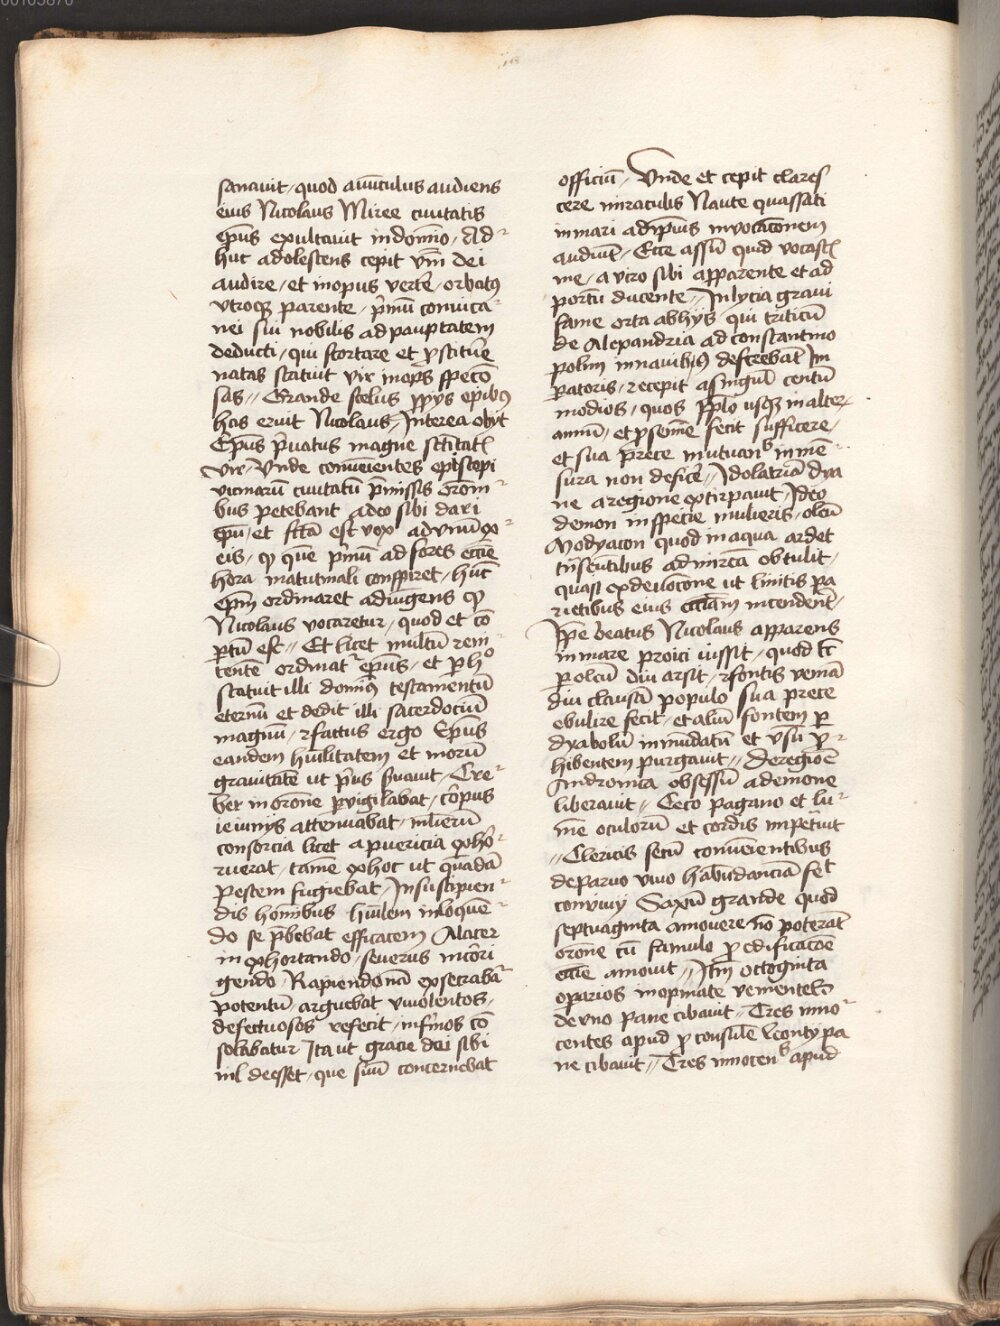 sanauit, quod auūculus audiens
eius Nicolaus Miree ciuitatis
ep̄us exultauit in domīo, Ad-
huc adolescens cepit v̄m dei
audire, et inopus vert̄e, orbatus
vtroq; parente, p̄mū conuica-
nei sui nobilis ad paup̄tatem
deducti, qui scortare et p̄stitūe
natas statuit vir inop̄s
sas,, Grande scelus
has eruit Nicolaus, Interea obijt
Ep̄us p̄uatus magne sc̄titat̄
vir, Vnde conueientes episcopi
vicinarū ciuitatū p̄missis orōni-
bus petebant a deo sibi dari
ep̄m, et fc̄ta est vox ad vnū ex
eis, q̄ que p̄mū ad fores ecc̄ie
hora matutinali conspiret, hūc
ep̄m ordinaret adiūgens q̄
Nicolaus vocaretur, quod et cō
p̄tū est,, Et licet multū reni-
tentē ordinat̄ ep̄us, et p̄ ho
statuit illi dominus testamentū
eternū et dedit illi sacerdociū
magnū, factus ergo Ep̄us
eandem hūilitatem et morū
grauitatē ut p̄us s̄uauit, Cre-
ber in orōne p̄uigilabat, corpus
ieiunijs attenuabat, mlierū
consorcia licet a puericia exhor-
ruerat, tamē ex hoc ut quādā
pestem fugiebat, In suscipien-
dis hominibus hūilem in loquē-
do se p̄bebat efficacem Alacer
in exhortando, seuerus in cori
gendo, Rapiendo exsecrabā
potentū arguebat violentos,
defectuosos refecit, infirmos cō
solabatur Ita ut gracie dei sibi
nil deesset, que suū concernebat
officiū, Vnde et cepit clares
cere miraculis Naute quassati
in mari adip̄ius inuocaconem
audiūt, Ecce assū quid vocast̄
me, a viro sibi apparente et ad
portū ducente,, In lycia graui
fame orta ab hijs qui triticū
de Alexandria ad constantino
polim in nauibus Im
p̄atoris, recepit a singul̄ centū
modios, quos pp̄lo usq; in alter
annū, et p̄ semīe fecit sufficere,
et sua prece mutuan in mē-
sura non defic̄e,, Idolatriā dya
ne a regione extirpauit, Ideo
demon in specie mulieris, oleū
Modyacon quod in aqua ardet
ad mircā obtulit,
quasi ex deuocōne ut linitis pa
rietibus eius ecc̄iam incenderēt,
Ip̄e beatus Nicolaus apparens
in mare proici iussit, quod
p̄ oleū diu arsit, fontis venā
diu clausā populo sua prece
ebulire fecit, et aliū fontem p̄
dyabolū inmūdatū et vsū p̄-
hibentem purgauit,, De regiōe
Andronica obsessū a demone
liberauit,, Ceco pagano et lu-
mē oculorū et cordis impetiuit
,,Clericis secū conueientibus
de paruo viuo habūdanciā fec̄
conuiuij Saxū grande quod
septuaginta amouere nō poterāt
orōne cū famulo p̄ edificacōe
ecc̄ie amouit,, Itm̄ octoginta
oparios inopinate venientes
de vno pane cibauit,, Tres inno-
centes apud p̄consulē Leontij pa
ne cibauit,, Tres innocen apud